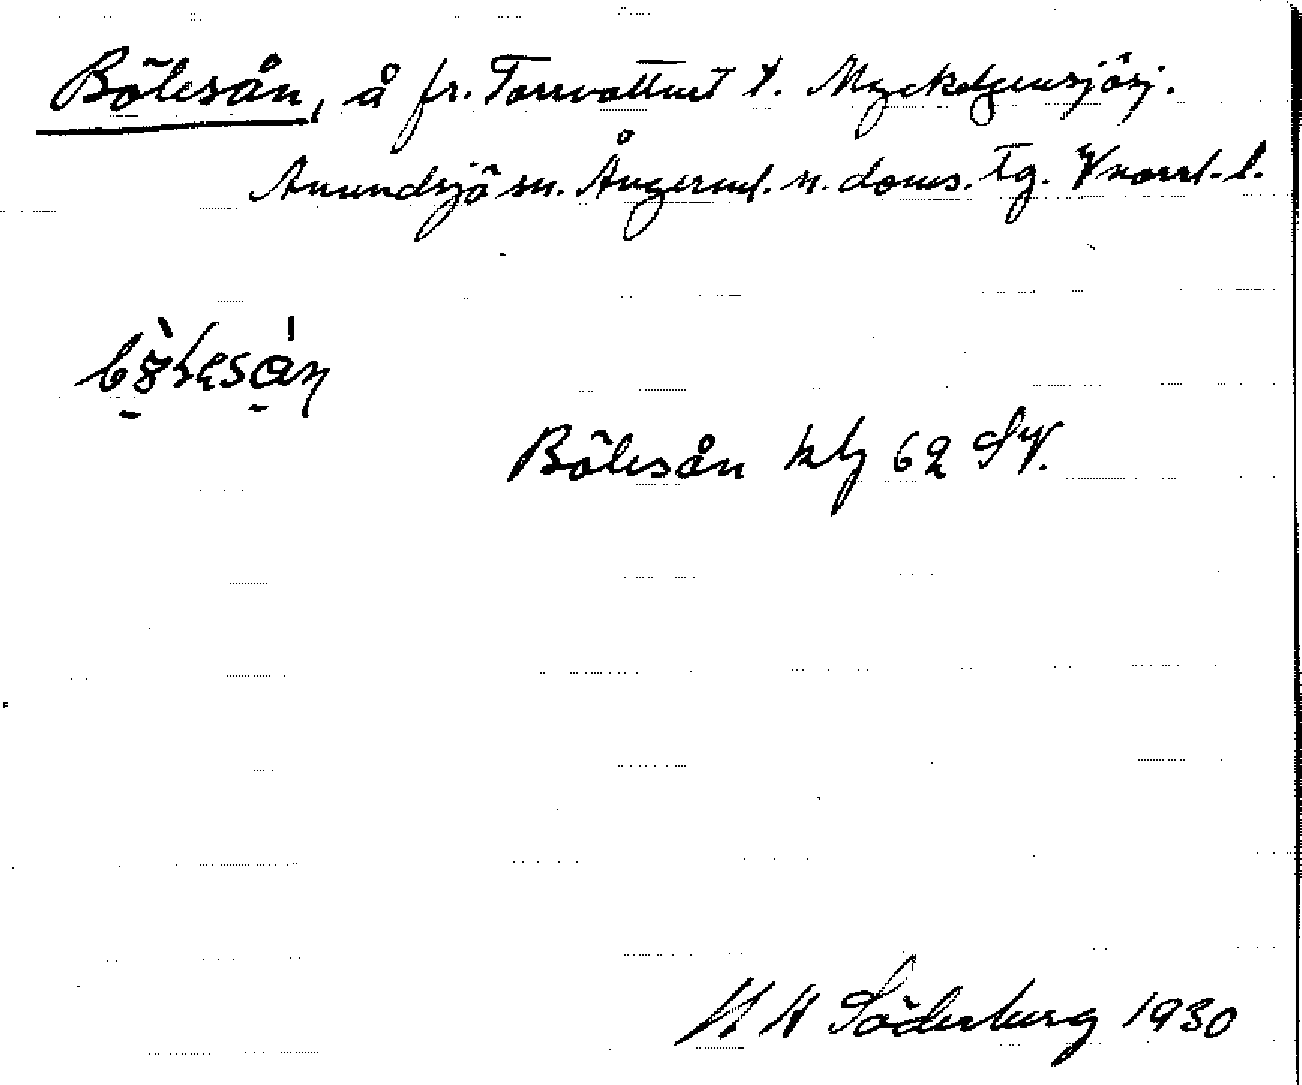 Bölesån, å fr. Torrvattnet t. Myckelgensjösj.
Anundsjö sn. Ångerml. n. doms. tg. Vnorrl. l.
Bölesån kbl 62 SV.
Söderberg 1930